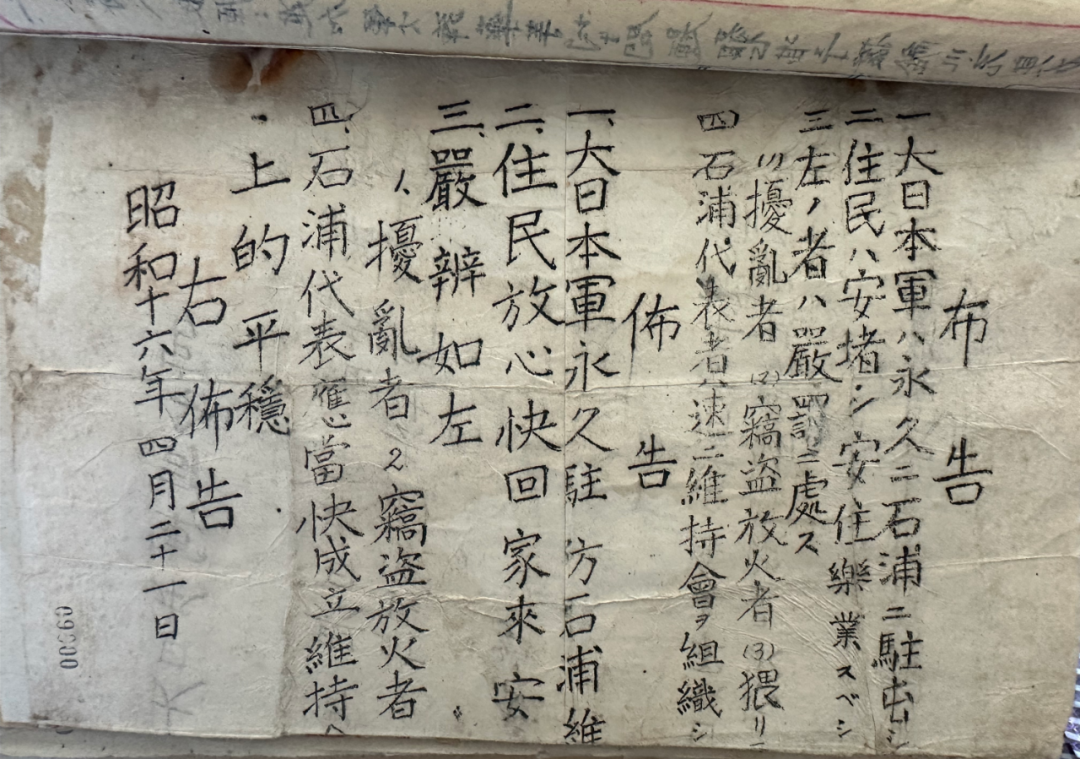 布告
一大日本軍ハ永久ニ石浦ニ駐屯シ
二住民ハ安堵シ安住樂業スベシ
三左ノ者ハ嚴罰ニ處ス
(1)擾亂者 (2)竊盗放火者 (3)猥リ
四石浦代表者ハ速ニ維持會ヲ組織シ
佈告
一、大日本軍永久駐方石浦維
二、住民放心快回家來安
三、嚴辨如左
1、擾亂者 2竊盗放火者
四、石浦代表應當快成立維持
上的平穩
右佈告
昭和十六年四月二十一日